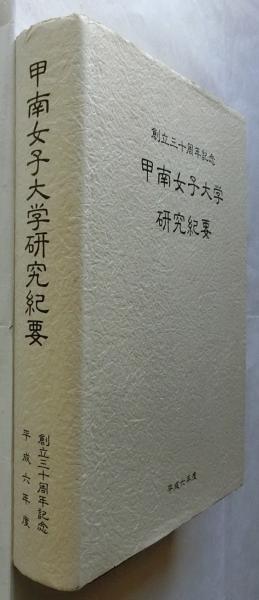 創立三十周年記念
甲南女子大学
研究紀要
平成六年度
甲南女子大学研究紀要
創立三十周年記念
平成六年度